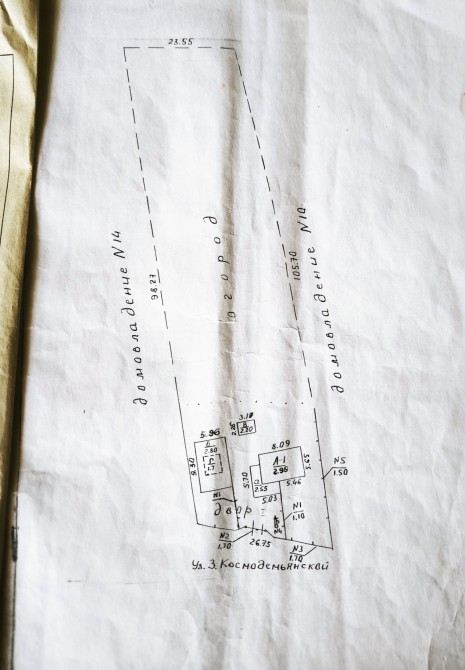 23.55
домовладение N14
98.27
огород
105.70
домовладение N10
3.10
2.20
5.96
2.80
9.30
8.09
А-1
5.65
5.70
2.55
5.46
5.03
N5
1.50
N1
N1
1.10
двор
N2
1.70
26.75
N3
1.70
Ул. З. Космодемьянской